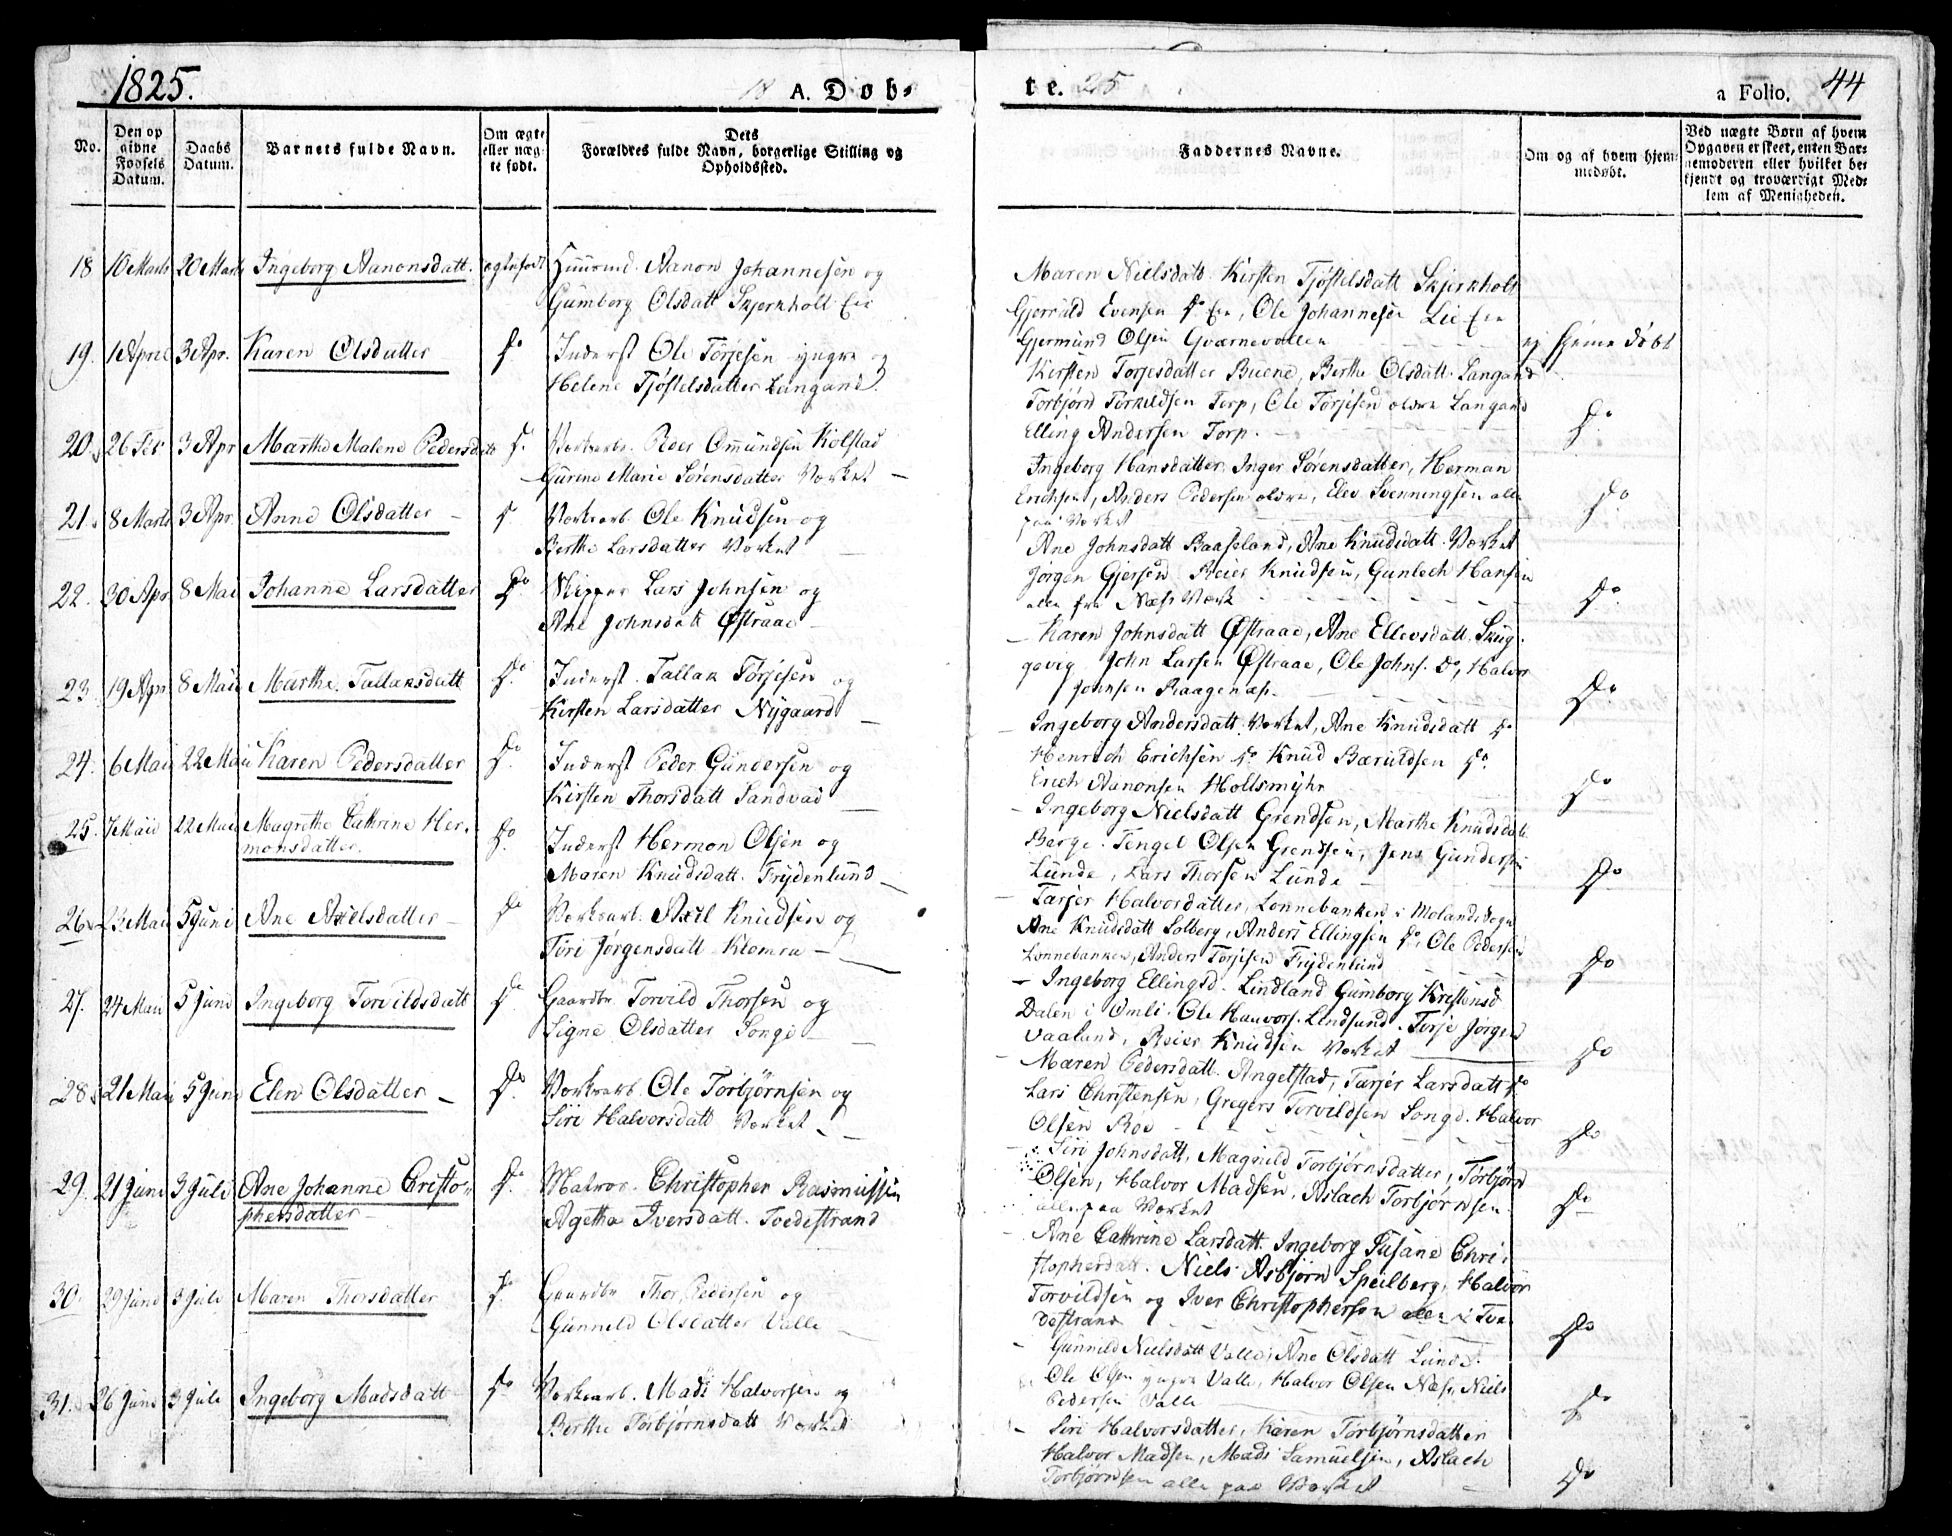 1825.
A. Døbte. 25
a Folio. 44
No.
Den opgivne Fødsels Datum.
Daabs Datum.
Barnets fulde Navn.
Om ægte eller uægte født.
Dets Forældres fulde Navn, borgerlige Stilling og Opholdssted.
Faddernes Navne.
Om og af hvem hjemmedøbt.
Ved uægte Børn af hvem Opgaven er skeet, enten Barnemoderen eller hvilket bekjendt og troværdigt Medlem af Menigheden.
18 10 Marts 20 Marts Ingeborg Aanonsdatt. ægtefødt Huusmd. Aanon Johannesen og
Gumborg Olsdatt Skjerkholt Eie
Maren Nielsdatt. Kirsten Tjøstelsdatt Skjerkholt
Gjeruld Evensen do Eie, Ole Johannesen Lie Eie
Gjermund Olsen Gvarnevollen
ej hjemedøbt
19. 1 April 3 Apr. Karen Olsdatter do Inderst Ole Torjesen yngre og
Helene Tjøstelsdatter Langand.
Kirsten Torjesdatter Buene, Berthe Olsdatt. Langand
Torbjørn Torkildsen Torp, Ole Torjesen ældre Langand
Elling Andersen Torp.
do
20. 26 Feb 3 Apr Marthe Malene Pedersdatt do Værksarb. Peder Omundsen Kolstad
Gurine Marie Sørensdatter Værket
Ingeborg Hansdatter. Inger Sørensdatter, Herman
Erichsen, Anders Pedersen ældre, Elev Svenningsen alle
paa Værket
do
21. 8 Marts 3 Apr. Anne Olsdatter do Værksarb. Ole Knudsen og
Berthe Larsdatter Værket
Ane Johnsdatt Baaseland, Ane Knudsdatt. Værket
Jørgen Gjersen Reier Knudsen, Gunlech Hansen
alle fra Næs Værk
do
22. 30 Apr 8 Mai Johanne Larsdatter do Skipper Lars Johnsen og
Ane Johnsdatt Østraae
Karen Johnsdatt Østraae, Ane Ellevsdatt. Skug-
gevig John Larsen Østraae, Ole Johns. do, Halvor
Johnsen Raagenæs.
do
23. 19 Apr 8 Mai Marthe Tallaksdatt do Inderst. Tallak Torjesen og
Kirsten Larsdatter Nygaard
Ingeborg Andersdatt. Værket, Ane Knudsdatt do
Henrich Erichsen do Knud Baruldsen do
Erich Aanonsen Holtsmyhr
do
24. 6 Mai 22 Mai Karen Pedersdatter do Inderst Peder Gundersen og
Kirsten Thorsdatt Sandvad
Ingeborg Nielsdatt Grendsen, Marthe Knudsdatt
Berge. Tengel Olsen Grendsen, Jens Gundersen
Lunde, Lars Thorsen Lunde
do
25. 7 Mai 22 Mai Magrethe Cathrine Her-
monsdatter. do Inderst Hermon Olsen og
Maren Knudsdatt. Frydenlund
Tarjer Halvorsdatter, Lonnebanken i Molands Sogn
Ane Knudsdatt Solberg, Anders Ellingsen do, Ole Pedersen
Lonnebanken, Anders Torjesen Frydenlund
do
26. 23 Mai 5 Juni Ane Axelsdatter do Værksarb. Axel Knudsen og
Tori Jørgensdatt Klomra
Ingeborg Ellingsd. Lindland Gumborg Kristensd
Dalen i Omli. Ole Haavors. Lindland. Torje Jørgens
Vaaland, Reier Knudsen Værket
do
27. 24 Mai 5 Juni Ingeborg Torvildsdatt do Gaardbr Torvild Thorsen og
Signe Olsdatter Songe
Maren Pedersdatt. Angelstad, Tarjer Larsdatt do
Lars Christensen, Gregers Torvildsen Songe. Halvor
Olsen Røe
do
28. 21 Mai 5 Juni Elen Olsdatter do Værksarb. Ole Torbjørnsen og
Siri Halvorsdatt Værket
Siri Johnsdatt, Magnild Torbjørnsdatter, Torbjørn
Olsen, Halvor Madsen, Aslach Torbjørnsen
alle paa Værket
do
29. 21 Juni 3 Juli Ane Johanne Christo-
phersdatter do Matros. Christopher Rasmussen
Agetha Iversdatt. Tvedestrand
Ane Cathrine Larsdatt. Ingeborg Susane Chri-
stophersdatt. Niels Asbjørn Speilberg, Halvor
Torvildsen og Iver Christophersen alle i Tve-
destrand
do
30. 29 Juni 3 Juli Maren Thorsdatter do Gaardbr Thor Pedersen og
Gunneld Olsdatter Valle
Gunnild Nielsdatt Valle, Ane Olsdatt Lunde.
Ole Olsen yngre Valle, Halvor Olsen Næs, Niels
Pedersen Valle
do
31. 26 Juni 3 Juli Ingeborg Madsdatt do Værksarb. Mads Halvorsen og
Berthe Torbjørnsdatt Værket
Siri Halvorsdatter, Karen Torbjørnsdatter
Halvor Madsen, Mads Samuelsen, Aslach
Torbjørnsen alle paa Værket
do